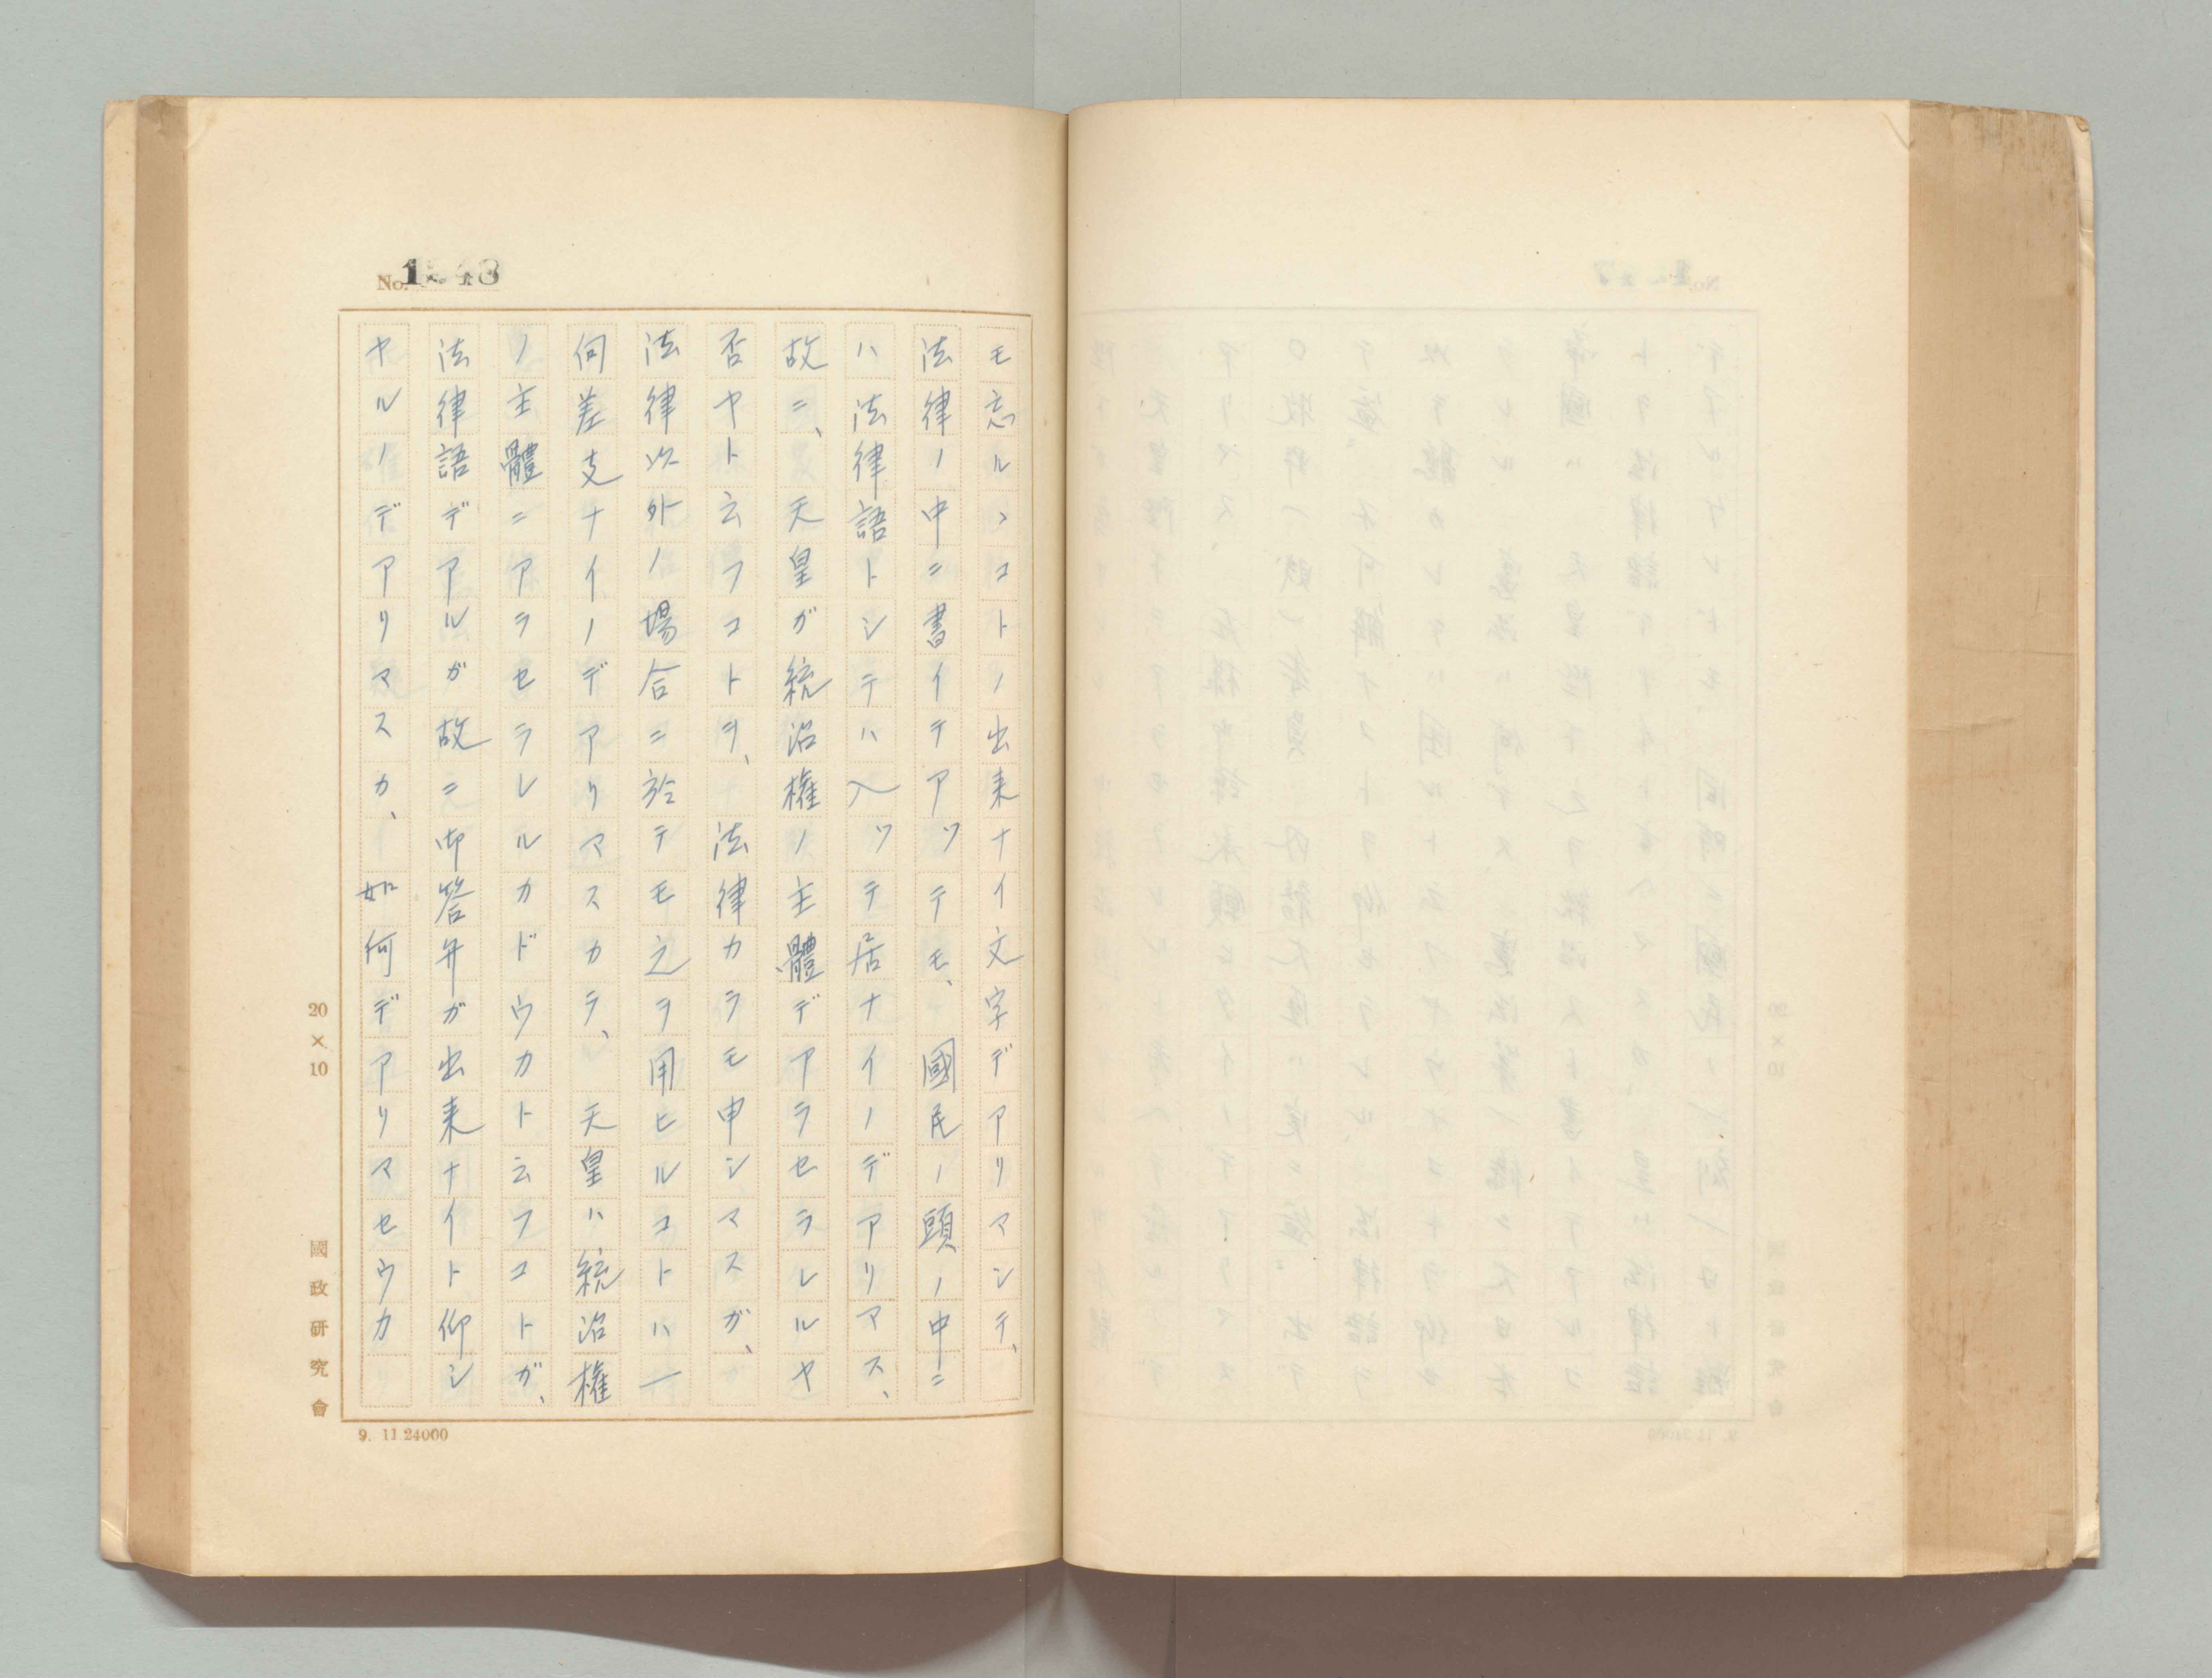 No.
モ忘ルヽコトノ出来ナイ文字デアリマシテ、
法律ノ中ニ書イテアツテモ、國民ノ頭ノ中ニ
ハ法律語トシテハ入ツテ居ナイノデアリマス、
故ニ、天皇ガ統治権ノ主體デアラセラレルヤ
否ヤト云フコトヲ、法律カラモ申シマスガ、
法律以外ノ場合ニ於テモ之ヲ用ヒルコトハ一
何差支ナイノデアリマスカラ、天皇ハ統治権
ノ主體ニアラセラレルカドウカト云フコトガ、
法律語デアルガ故ニ御答弁ガ出来ナイト仰シ
ヤルノデアリマスカ、如何デアリマセウカ
20×10
國政研究會
9. 11.24000